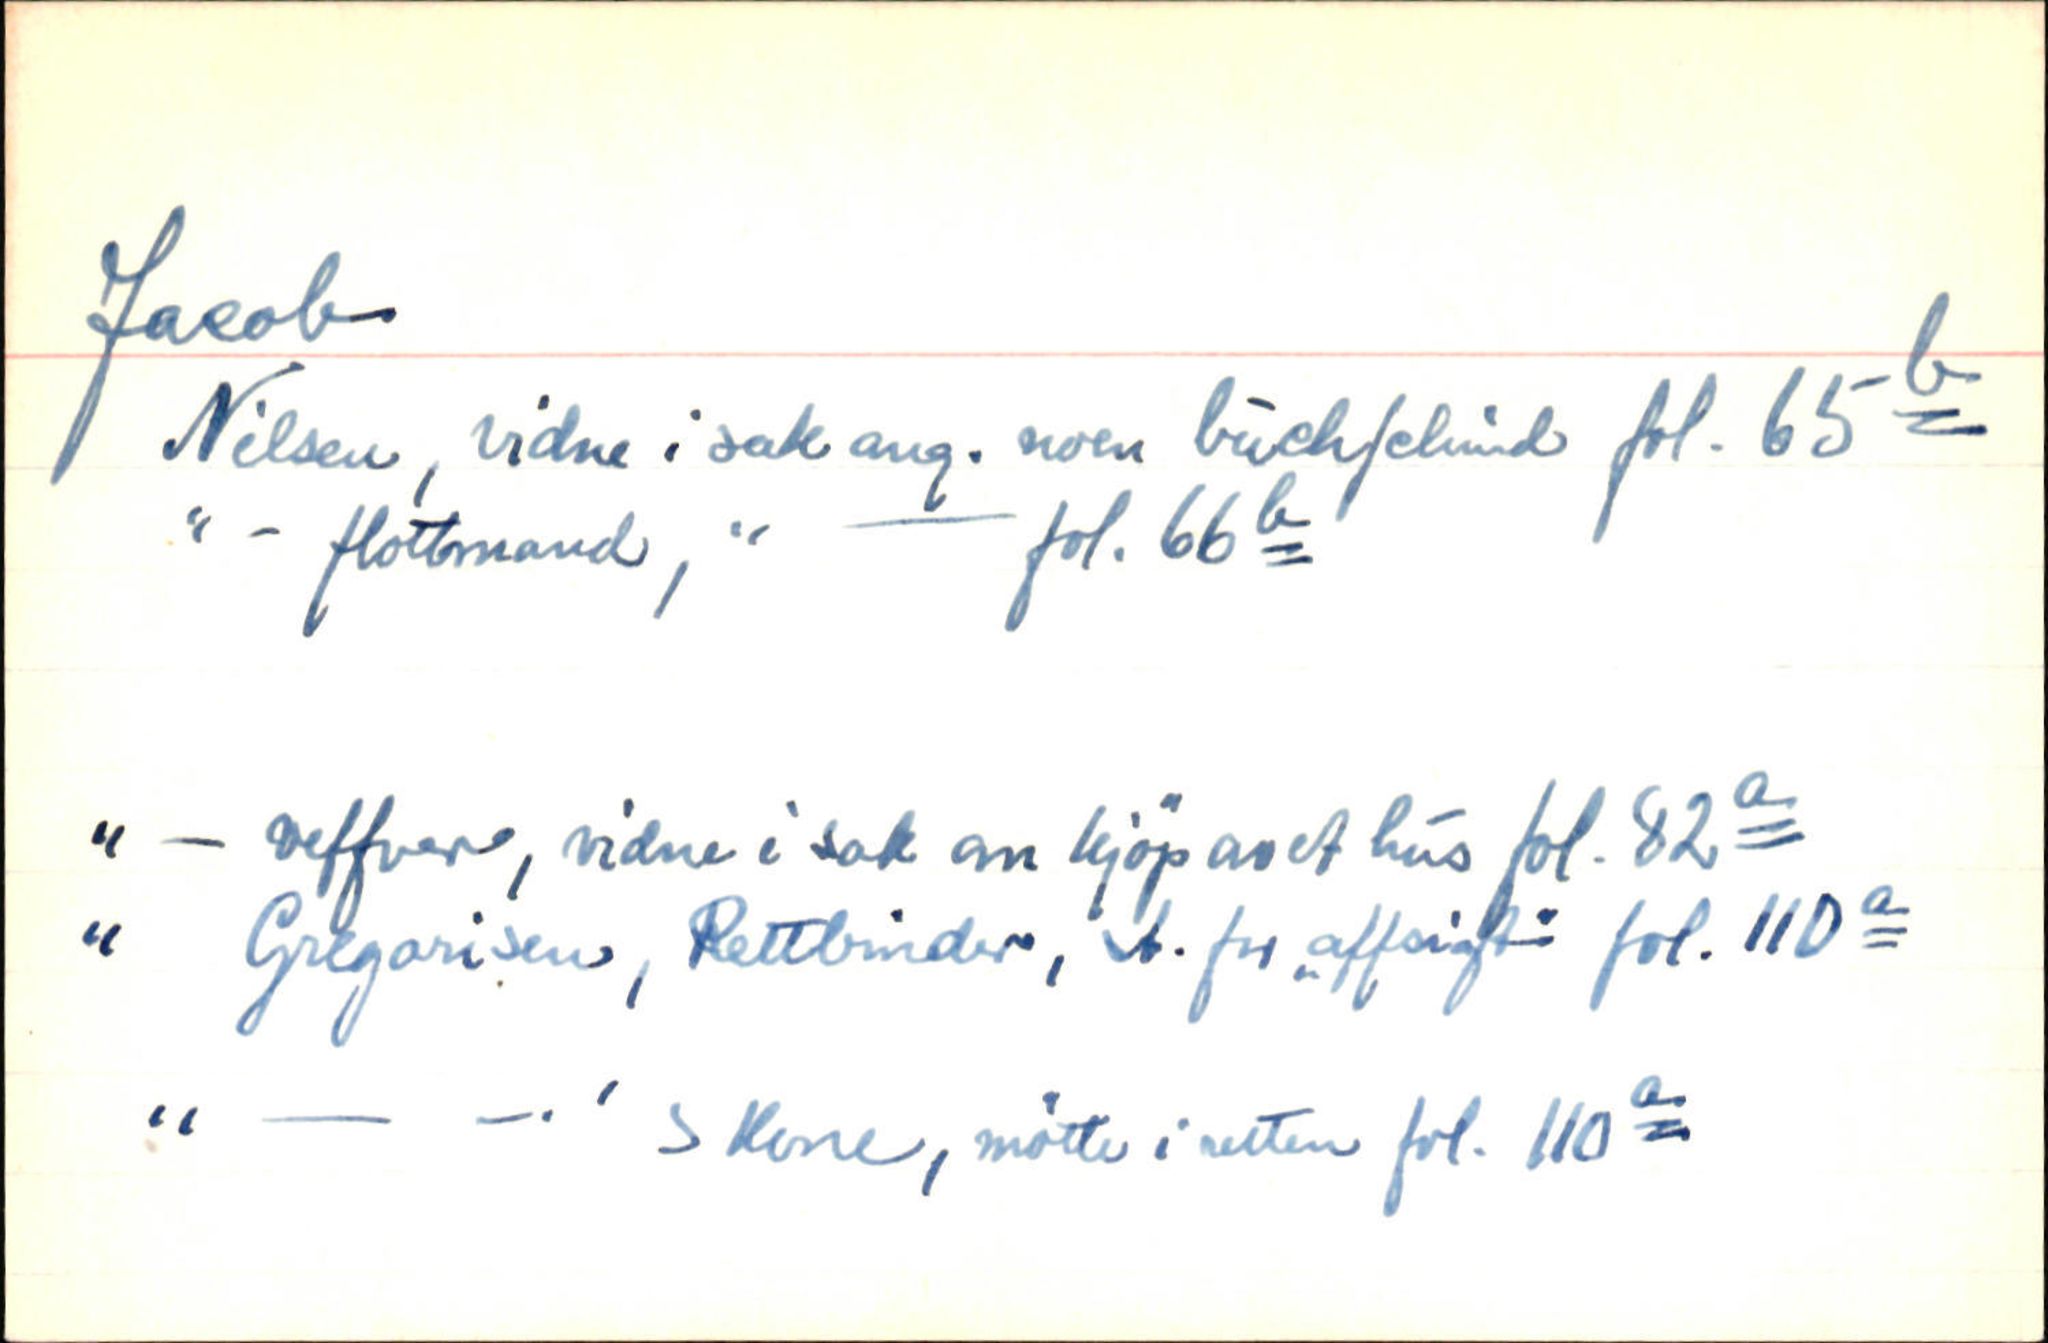 Jacob
Nilsen, vidne i sak ang. noen buchschind fol. 65 b
" - flottmand, " — fol. 66 b
" — veffver, vidne i sak om kjöp av et hus fol. 82 a
" Gregorisen, Rettbinder, st. for „affsigt" fol. 110 a
" — —.' s Kone, mötte i retten fol. 110 a